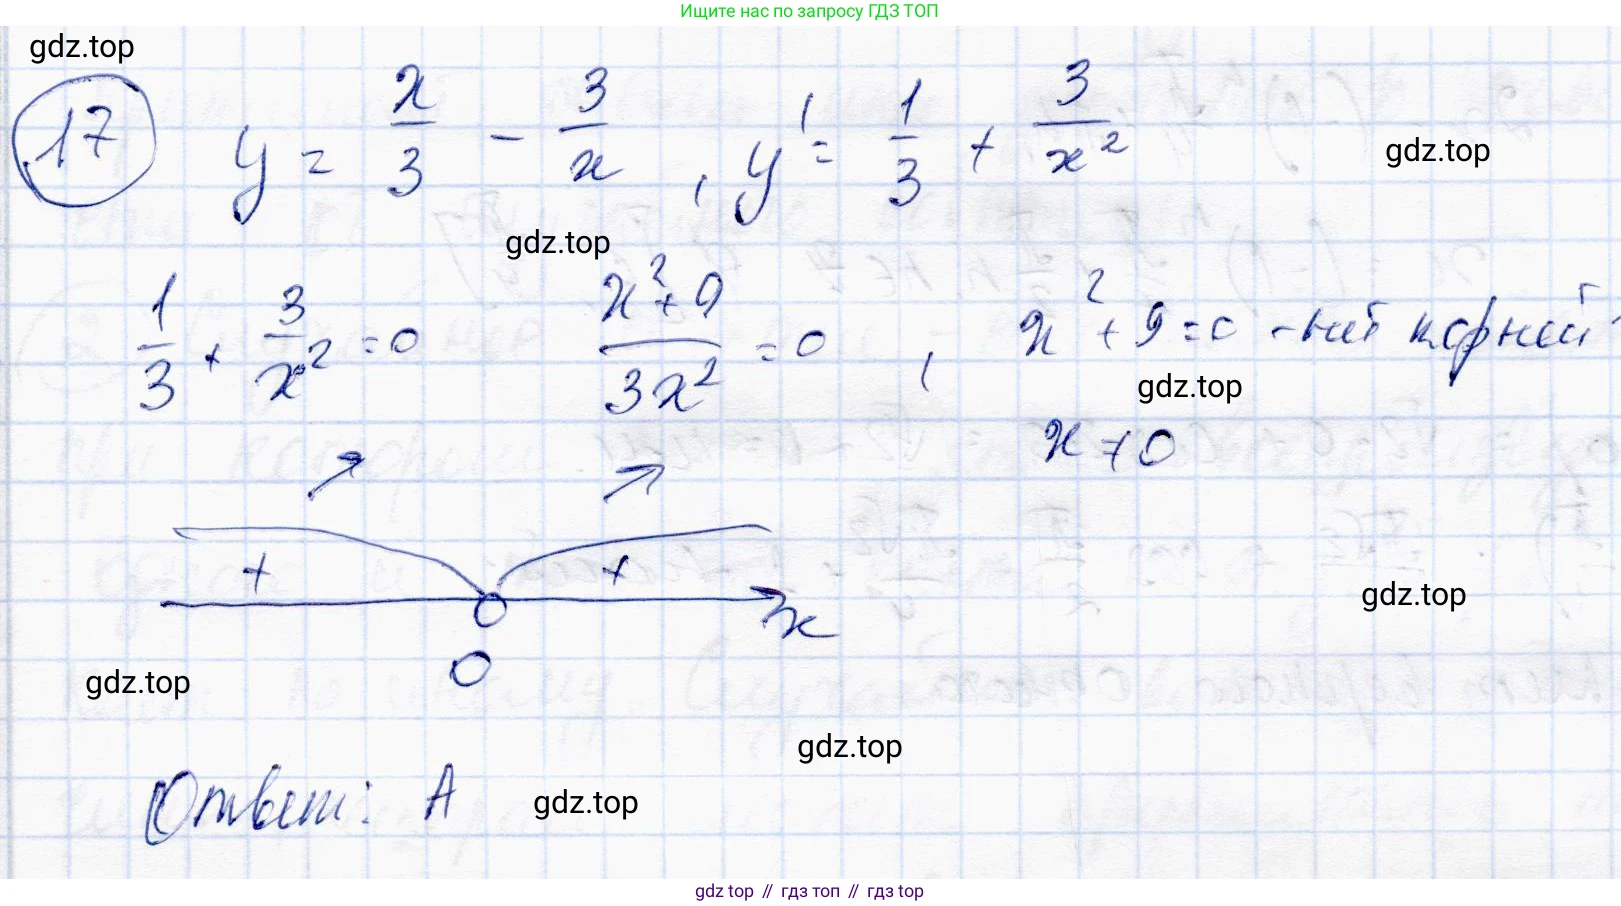 Ищите нас по запросу ГДЗ ТОП
gdz.top
17 y = x/3 - 3/x , y' = 1/3 + 3/x²
gdz.top
gdz.top
1/3 + 3/x² = 0 (x²+9)/(3x²) = 0 , x² + 9 = 0 - нет корней
gdz.top
x ≠ 0
+ +
x
gdz.top
0
gdz.top
gdz.top
Ответ: А
gdz.top
gdz top // гдз топ // гдз top